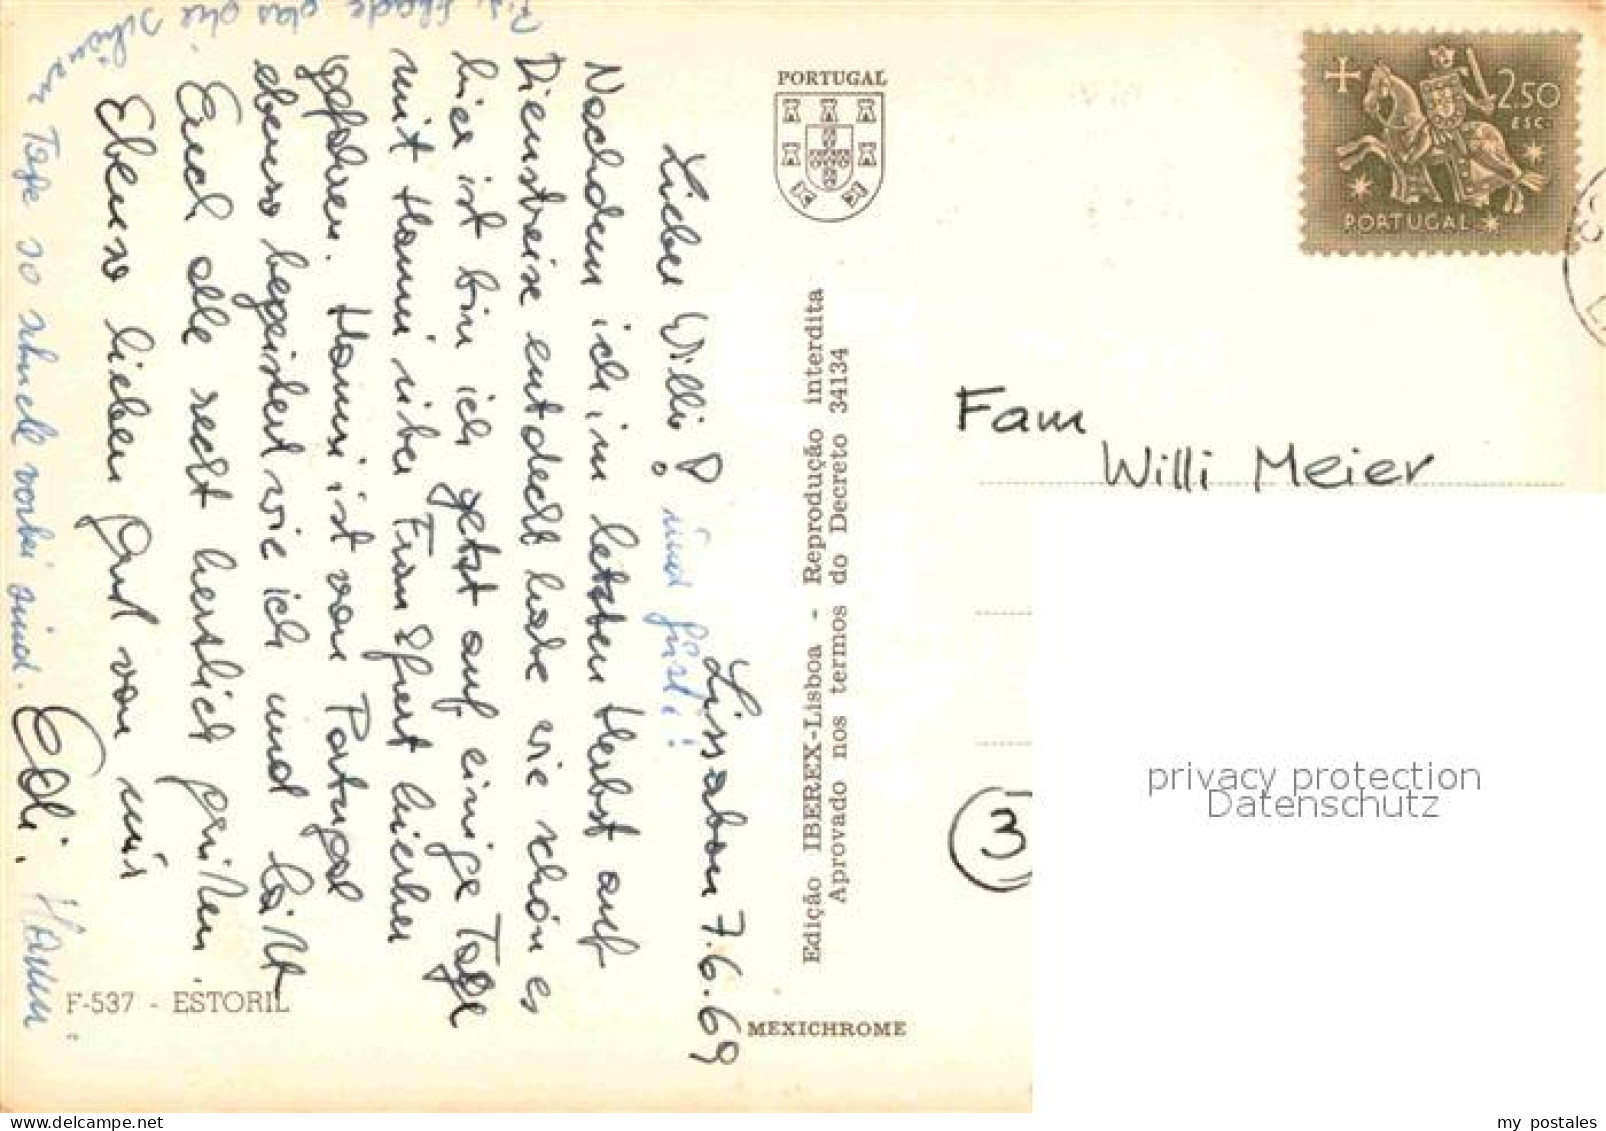 Lissabon 7.6.69
Lieber Willi! und Gusti!
Nachdem ich im letzten Herbst auf
Dienstreise entdeckt habe wie schön es
hier ist bin ich jetzt auf einige Tage
mit Hanni über Frankfurt hierher
gefahren. Hanni ist von Portugal
ebenso begeistert wie ich und läßt
Euch alle recht herzlich grüßen.
Ebenso lieben Gruß von mir
Edi.
P.S. Schade das die schönen Tage so schnell vorbei sind.
Hanni.
F-537 - ESTORIL
PORTUGAL
Edição IBEREX-Lisboa - Reprodução interdita
Aprovado nos termos do Decreto 34134
MEXICHROME
2.50
ESC.
PORTUGAL
Fam
Willi Meier
3
privacy protection
Datenschutz
delcampe.net
my_postales